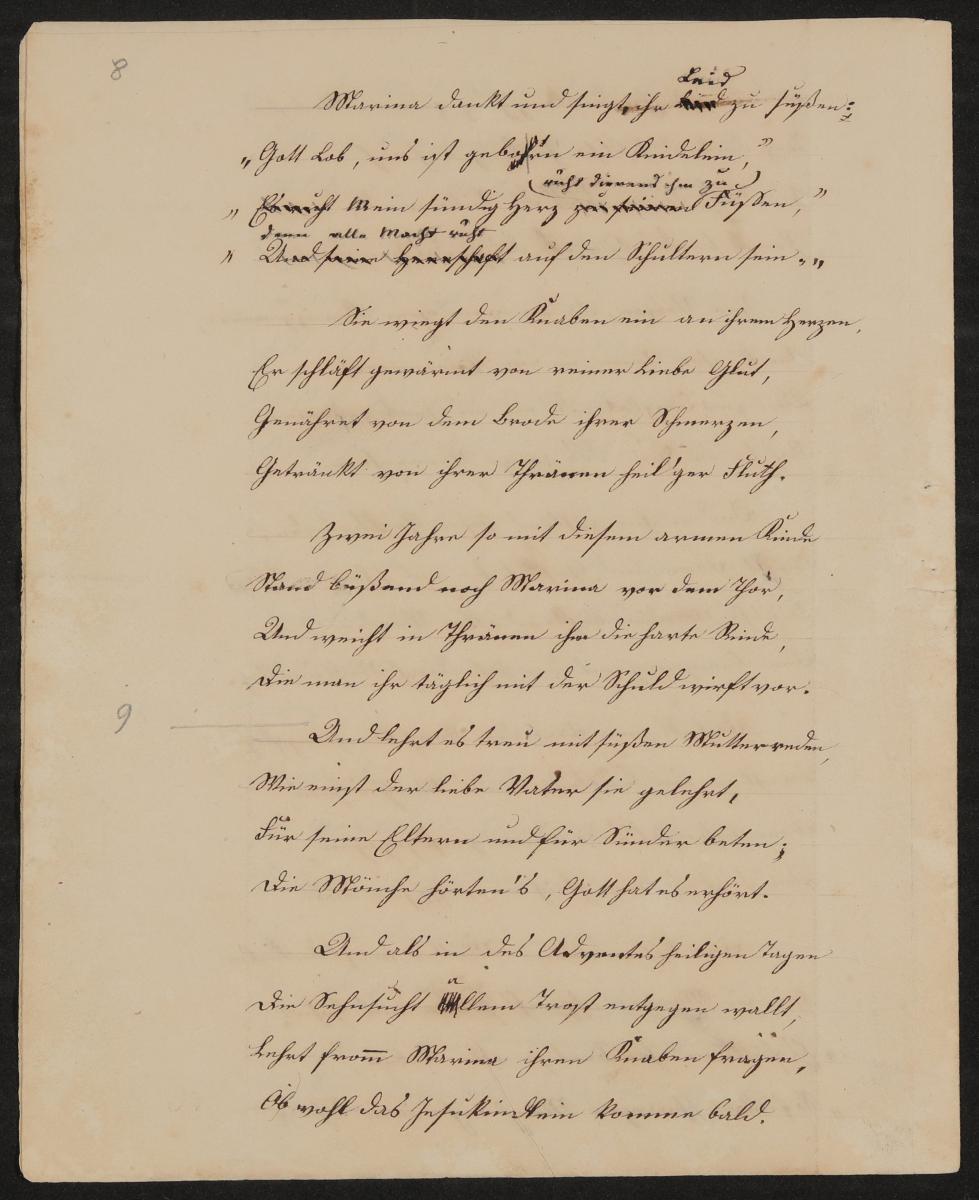 8
Leid
Marina dankt und singt, ihr Leid zu süßen:
„Gott Lob, uns ist geboh'rn ein Kindelein,"
ruht dienend ihm zu
„ Mein sündig Herz zu seinen Füssen,"
denn alle Macht ruht
„ Und seine Herrschaft auf den Schultern sein.„
Sie wiegt den Knaben ein an ihrem Herzen,
Er schläft gewärmt von reiner Liebe Glut,
Genähret von dem Brode ihrer Schmerzen,
Getränkt von ihrer Thränen heil'ger Fluth.
Zwei Jahre so mit diesem armen Kinde
Stand büßend noch Marina vor dem Thor,
Und weicht in Thränen ihm die harte Rinde,
Die man ihr täglich mit der Schuld wirft vor.
9
Und lehrt es treu mit süßen Mutterreden,
Wie einst der liebe Vater sie gelehrt,
Für seine Eltern und für Sünder beten;
Die Mönche hörten's, Gott hat es erhört.
Und als in des Adventes heiligen Tagen
a
Die Sehnsucht allem Trost entgegen wallt,
Lehrt from̅ Marina ihren Knaben fragen,
Ob wohl das Jesukindlein komme bald.